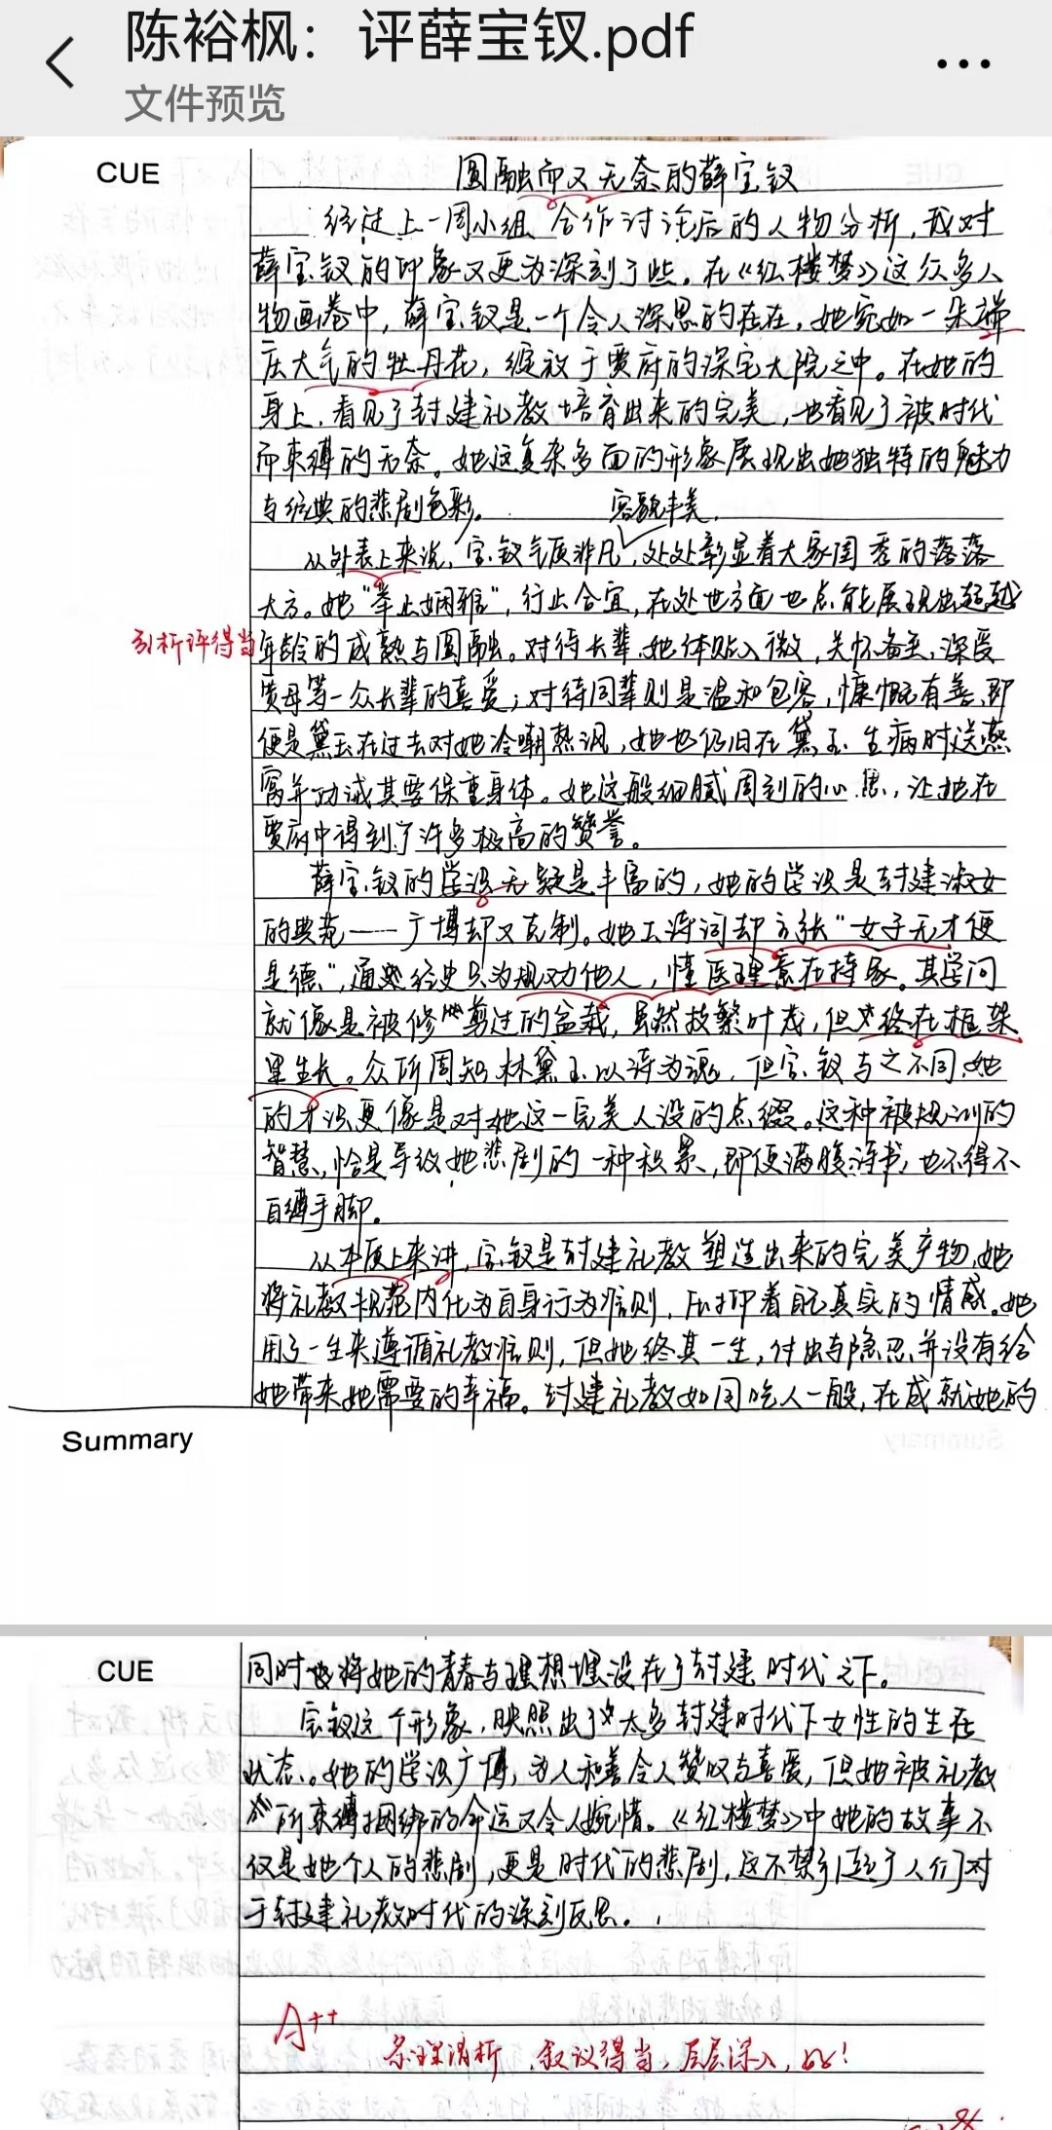 陈裕枫：评薛宝钗.pdf
文件预览
CUE
圆融而又无奈的薛宝钗
经过上一周小组合作讨论后的人物分析，我对
薛宝钗的印象又更为深刻了些。在《红楼梦》这众多人
物画卷中，薛宝钗是一个令人深思的存在，她宛如一朵端
庄大气的牡丹花，绽放于贾府的深宅大院之中。在她的
身上，看见了封建礼教培育出来的完美，也看见了被时代
所束缚的无奈。她这复杂多面的形象展现出她独特的魅力
与经典的悲剧色彩。
容貌丰美，
从外表上来说，宝钗气质非凡，处处彰显着大家闺秀的落落
大方。她“举止娴雅”，行止合宜，在处世方面也总能展现出超越
剖析评得当
年龄的成熟与圆融。对待长辈，她体贴入微，关怀备至，深受
贾母等一众长辈的喜爱；对待同辈则是温和包容，慷慨友善，即
便是黛玉在过去对她冷嘲热讽，她也仍旧在黛玉生病时送燕
窝并劝诫其要保重身体。她这般细腻周到的心思，让她在
贾府中得到了许多极高的赞誉。
薛宝钗的学识无疑是丰富的，她的学识是封建淑女
的典范——广博却又克制。她工诗词却主张“女子无才便
是德”，通晓经史只为规劝他人，懂医理意在持家。其学问
就像是被修剪过的盆栽，虽然枝繁叶茂，但终在框架
里生长。众所周知林黛玉以诗为魂，但宝钗与之不同，她
的才识更像是对她这一完美人设的点缀。这种被规训的
智慧，恰是导致她悲剧的一种积累，即便满腹诗书，也不得不
自缚手脚。
从本质上来讲，宝钗是封建礼教塑造出来的完美产物，她
将礼教规范内化为自身行为准则，压抑着自己真实的情感。她
用了一生来遵循礼教准则，但她终其一生，付出与隐忍并没有给
她带来她需要的幸福。封建礼教如同吃人一般，在成就她的
Summary
CUE
同时也将她的青春与理想埋没在了封建时代之下。
宝钗这个形象，映照出了太多封建时代下女性的生存
状态。她的学识广博，为人和善令人赞叹与喜爱，但她被礼教
所束缚捆绑的命运又令人惋惜。《红楼梦》中她的故事不
仅是她个人的悲剧，更是时代的悲剧，这不禁引起了人们对
于封建礼教时代的深刻反思。
A++
条理清析，叙议得当，层层深入，